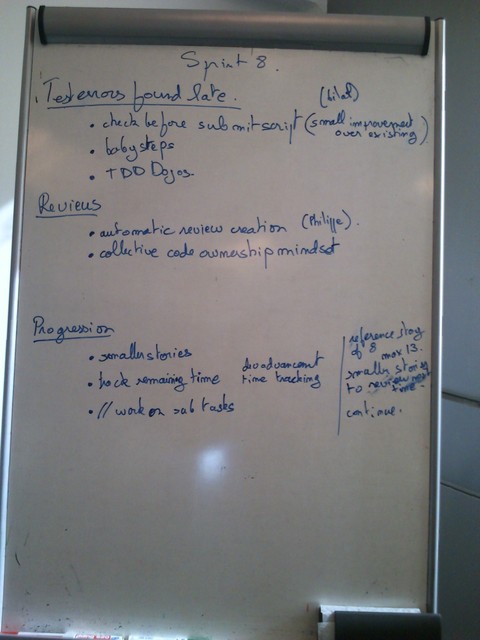 Sprint 8.
Test errors found late. (bilal)
• check before submit script (small improvement over existing)
• baby steps
• TDD Dojos.
Reviews
• automatic review creation (Philippe).
• collective code ownership mindset
Progression
• smaller stories
• track remaining time
time tracking
• // work on sub tasks
reference story
of 8 max 13.
smaller stories
to review next
time.
continue.